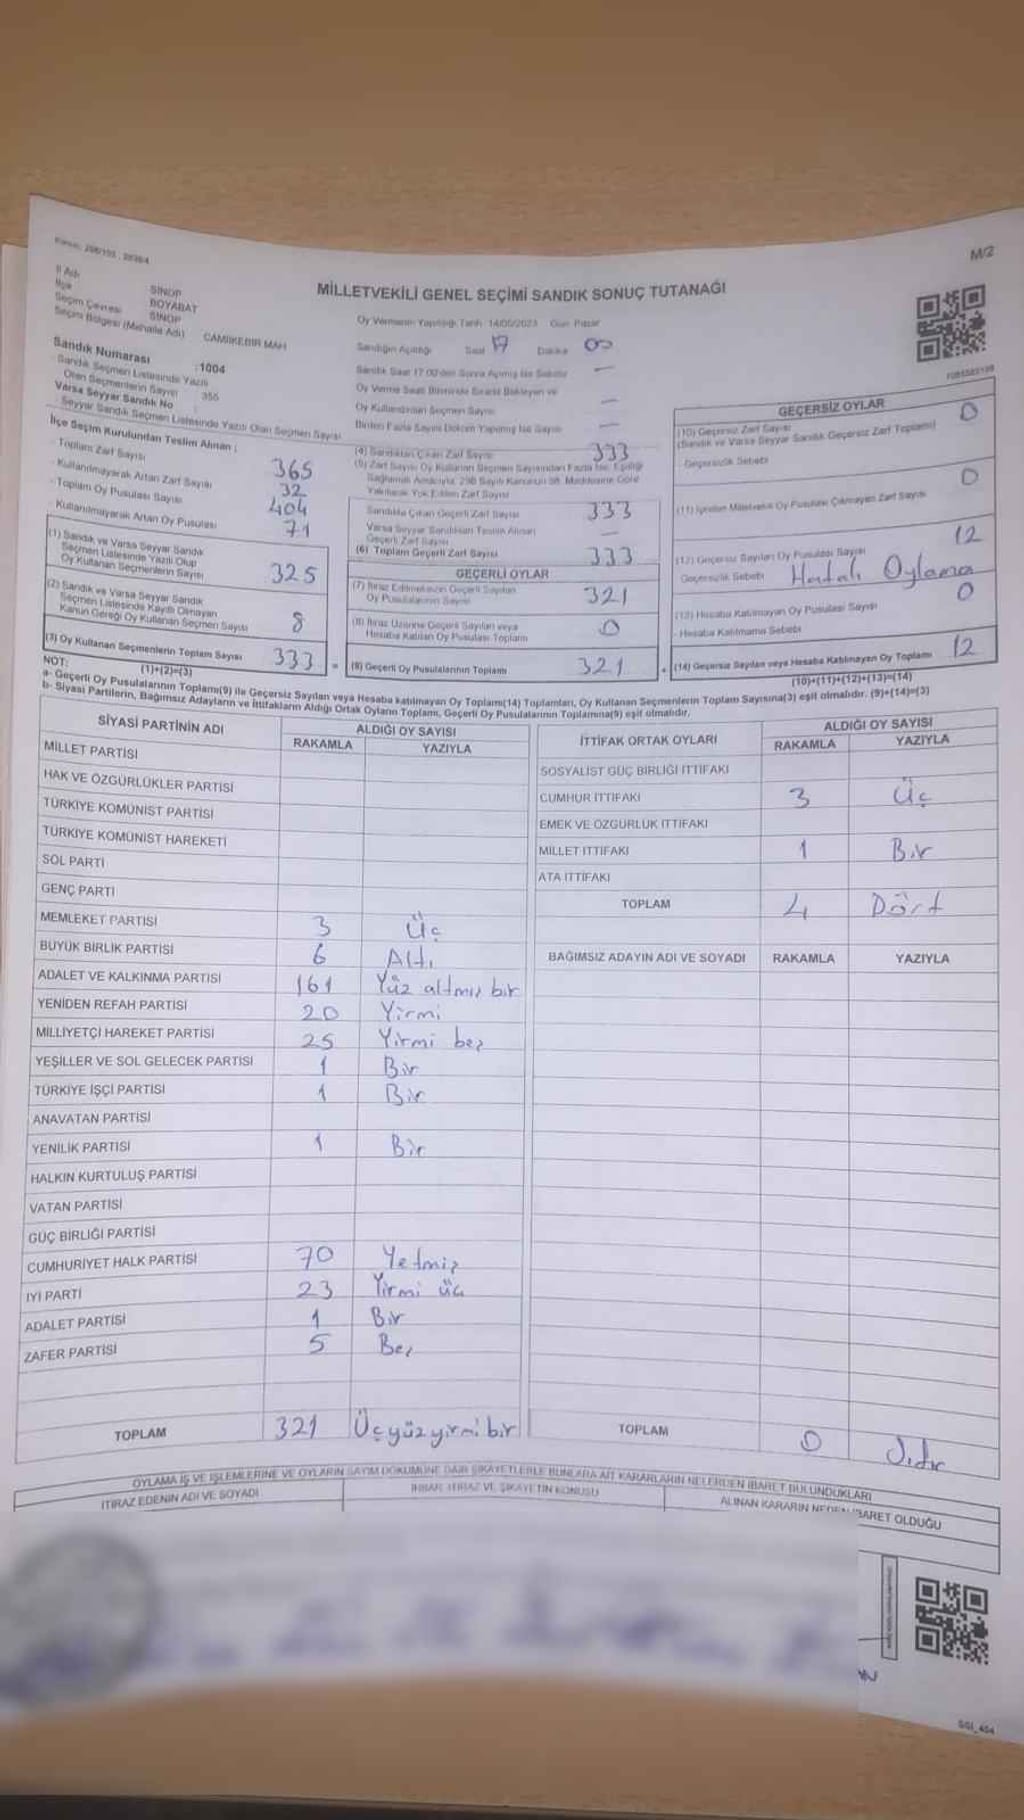 M/2
İl Adı SİNOP
İlçe BOYABAT
Seçim Çevresi SİNOP
Seçim Bölgesi (Mahalle Adı) CAMİİKEBİR MAH
MİLLETVEKİLİ GENEL SEÇİMİ SANDIK SONUÇ TUTANAĞI
Oy Vermenin Yapıldığı Tarih: 14/05/2023 Gün: Pazar
Sandığın Açıldığı Saat 17 Dakika 00
Sandık Saat 17.00'den Sonra Açılmış İse Sebebi —
Oy Verme Saati Bitiminde Sırada Bekleyen ve
Oy Kullandırılan Seçmen Sayısı —
Birden Fazla Sayım Döküm Yapılmış İse Sayısı —
Sandık Numarası :1004
Sandık Seçmen Listesinde Yazılı
Olan Seçmenlerin Sayısı 355
Varsa Seyyar Sandık No :
Seyyar Sandık Seçmen Listesinde Yazılı Olan Seçmen Sayısı
İlçe Seçim Kurulundan Teslim Alınan :
- Toplam Zarf Sayısı 365
- Kullanılmayarak Artan Zarf Sayısı 32
- Toplam Oy Pusulası Sayısı 404
- Kullanılmayarak Artan Oy Pusulası 71
(1) Sandık ve Varsa Seyyar Sandık
Seçmen Listesinde Yazılı Olup
Oy Kullanan Seçmenlerin Sayısı 325
(2) Sandık ve Varsa Seyyar Sandık
Seçmen Listesinde Kayıtlı Olmayan
Kanun Gereği Oy Kullanan Seçmen Sayısı 8
(3) Oy Kullanan Seçmenlerin Toplam Sayısı 333 =
(1)+(2)=(3)
(4) Sandıktan Çıkan Zarf Sayısı 333
(5) Zarf Sayısı Oy Kullanan Seçmen Sayısından Fazla İse, Eşitliği
Sağlamak Amacıyla, 298 Sayılı Kanunun 98. Maddesine Göre
Yakılarak Yok Edilen Zarf Sayısı
Sandıkta Çıkan Geçerli Zarf Sayısı 333
Varsa Seyyar Sandıktan Teslim Alınan
Geçerli Zarf Sayısı —
(6) Toplam Geçerli Zarf Sayısı 333
GEÇERLİ OYLAR
(7) İtiraz Edilmeksizin Geçerli Sayılan
Oy Pusulalarının Sayısı 321
(8) İtiraz Üzerine Geçerli Sayılan veya
Hesaba Katılan Oy Pusulası Toplamı 0
(9) Geçerli Oy Pusulalarının Toplamı 321 +
GEÇERSİZ OYLAR
(10) Geçersiz Zarf Sayısı 0
(Sandık ve Varsa Seyyar Sandık Geçersiz Zarf Toplamı)
- Geçersizlik Sebebi
(11) İçinden Milletvekili Oy Pusulası Çıkmayan Zarf Sayısı 0
(12) Geçersiz Sayılan Oy Pusulası Sayısı 12
Geçersizlik Sebebi Hatalı Oylama
(13) Hesaba Katılmayan Oy Pusulası Sayısı 0
- Hesaba Katılmama Sebebi
(14) Geçersiz Sayılan veya Hesaba Katılmayan Oy Toplamı 12
(10)+(11)+(12)+(13)=(14)
NOT:
a- Geçerli Oy Pusulalarının Toplamı(9) ile Geçersiz Sayılan veya Hesaba katılmayan Oy Toplamı(14) Toplamları, Oy Kullanan Seçmenlerin Toplam Sayısına(3) eşit olmalıdır. (9)+(14)=(3)
b- Siyasi Partilerin, Bağımsız Adayların ve İttifakların Aldığı Ortak Oyların Toplamı, Geçerli Oy Pusulalarının Toplamına(9) eşit olmalıdır.
SİYASİ PARTİNİN ADI ALDIĞI OY SAYISI
RAKAMLA YAZIYLA
MİLLET PARTİSİ
HAK VE ÖZGÜRLÜKLER PARTİSİ
TÜRKİYE KOMÜNİST PARTİSİ
TÜRKİYE KOMÜNİST HAREKETİ
SOL PARTİ
GENÇ PARTİ
MEMLEKET PARTİSİ 3 Üç
BÜYÜK BİRLİK PARTİSİ 6 Altı
ADALET VE KALKINMA PARTİSİ 161 Yüz altmış bir
YENİDEN REFAH PARTİSİ 20 Yirmi
MİLLİYETÇİ HAREKET PARTİSİ 25 Yirmi beş
YEŞİLLER VE SOL GELECEK PARTİSİ 1 Bir
TÜRKİYE İŞÇİ PARTİSİ 1 Bir
ANAVATAN PARTİSİ
YENİLİK PARTİSİ 1 Bir
HALKIN KURTULUŞ PARTİSİ
VATAN PARTİSİ
GÜÇ BİRLİĞİ PARTİSİ
CUMHURİYET HALK PARTİSİ 70 Yetmiş
İYİ PARTİ 23 Yirmi üç
ADALET PARTİSİ 1 Bir
ZAFER PARTİSİ 5 Beş
TOPLAM 321 Üçyüzyirmibir
İTTİFAK ORTAK OYLARI ALDIĞI OY SAYISI
RAKAMLA YAZIYLA
SOSYALİST GÜÇ BİRLİĞİ İTTİFAKI
CUMHUR İTTİFAKI 3 Üç
EMEK VE ÖZGÜRLÜK İTTİFAKI
MİLLET İTTİFAKI 1 Bir
ATA İTTİFAKI
TOPLAM 4 Dört
BAĞIMSIZ ADAYIN ADI VE SOYADI RAKAMLA YAZIYLA
TOPLAM 0
OYLAMA İŞ VE İŞLEMLERİNE VE OYLARIN SAYIM DÖKÜMÜNE DAİR ŞİKAYETLERLE BUNLARA AİT KARARLARIN NELERDEN İBARET BULUNDUKLARI
İTİRAZ EDENİN ADI VE SOYADI İHBAR, İTİRAZ VE ŞİKAYETİN KONUSU ALINAN KARARIN NEDEN İBARET OLDUĞU
SGI_404